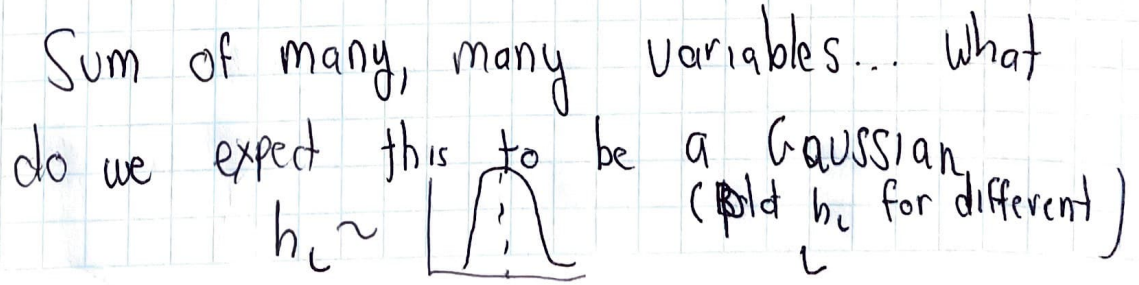 Sum of many, many variables... What
do we expect this to be a Gaussian
h_i ~ ( h_i for different
i )